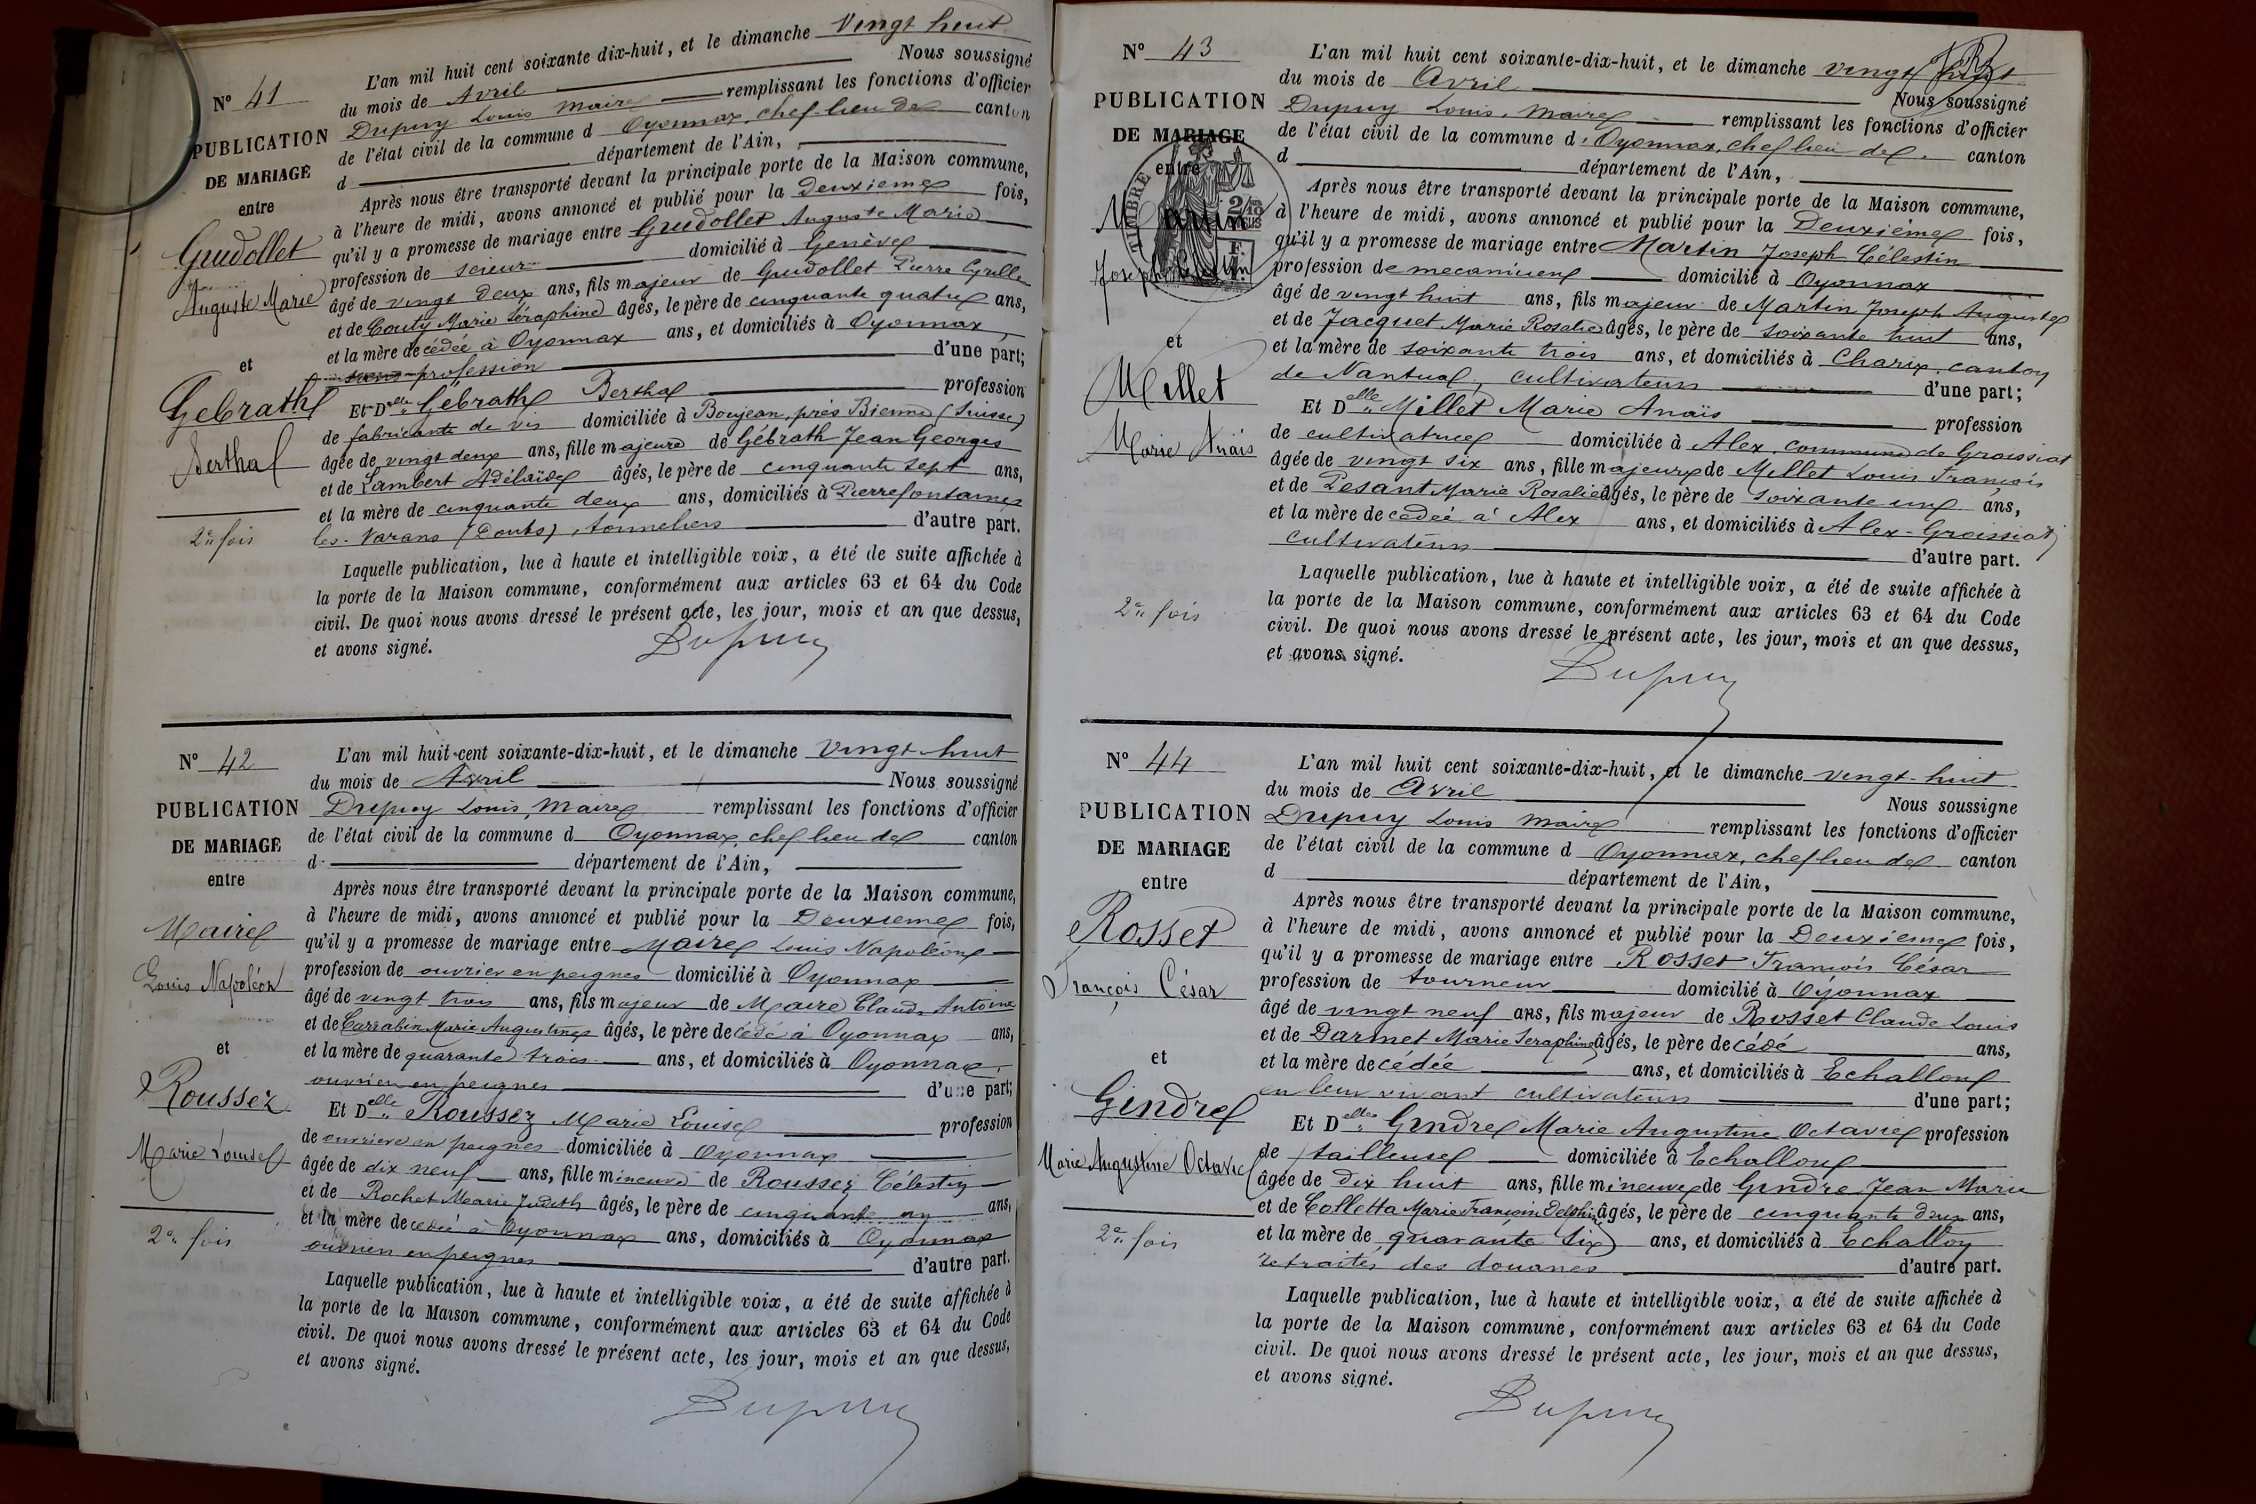 N° 41
PUBLICATION
DE MARIAGE
entre
Gudollet
Auguste Marie
et
Gebrath
Bertha
2e fois
L'an mil huit cent soixante dix-huit, et le dimanche Vingt huit
du mois de Avril Nous soussigné
Dupuy Louis Maire remplissant les fonctions d'officier
de l'état civil de la commune d Oyonnax, chef-lieu de canton
d département de l'Ain,
Après nous être transporté devant la principale porte de la Maison commune,
à l'heure de midi, avons annoncé et publié pour la Deuxième fois,
qu'il y a promesse de mariage entre Gudollet Auguste Marie
profession de scieur domicilié à Genève
âgé de vingt deux ans, fils majeur de Gudollet Pierre Cyrille
et de Couty Marie Séraphine âgés, le père de cinquante quatre ans,
et la mère décédée à Oyonnax ans, et domiciliés à Oyonnax
sans profession d'une part;
Et Delle Gébrath Bertha profession
de fabricante de vis domiciliée à Boujean, près Bienne (Suisse)
âgée de vingt deux ans, fille majeure de Gébrath Jean Georges
et de Lambert Adélaïde âgés, le père de cinquante sept ans,
et la mère de cinquante deux ans, domiciliés à Pierrefontaine
les-Varans (Doubs), tonneliers d'autre part.
Laquelle publication, lue à haute et intelligible voix, a été de suite affichée à
la porte de la Maison commune, conformément aux articles 63 et 64 du Code
civil. De quoi nous avons dressé le présent acte, les jour, mois et an que dessus,
et avons signé.
Dupuy
N° 42
PUBLICATION
DE MARIAGE
entre
Maire
Louis Napoléon
et
Roussez
Marie Louise
2e fois
L'an mil huit cent soixante-dix-huit, et le dimanche Vingt-huit
du mois de Avril Nous soussigné
Dupuy Louis, Maire remplissant les fonctions d'officier
de l'état civil de la commune d Oyonnax, chef lieu de canton
d département de l'Ain,
Après nous être transporté devant la principale porte de la Maison commune,
à l'heure de midi, avons annoncé et publié pour la Deuxième fois,
qu'il y a promesse de mariage entre Maire Louis Napoléon
profession de ouvrier en peignes domicilié à Oyonnax
âgé de vingt trois ans, fils majeur de Maire Claude Antoine
et de Carrabin Marie Augustine âgés, le père décédé à Oyonnax ans,
et la mère de quarante trois ans, et domiciliés à Oyonnax,
ouvriers en peignes d'une part;
Et Delle Roussez Marie Louise profession
de ouvrière en peignes domiciliée à Oyonnax
âgée de dix neuf ans, fille mineure de Roussez Célestin
et de Rochet Marie Judith âgés, le père de cinquante un ans,
et la mère décédée à Oyonnax ans, domiciliés à Oyonnax
ouvriers en peignes d'autre part.
Laquelle publication, lue à haute et intelligible voix, a été de suite affichée à
la porte de la Maison commune, conformément aux articles 63 et 64 du Code
civil. De quoi nous avons dressé le présent acte, les jour, mois et an que dessus,
et avons signé.
Dupuy
N° 43
PUBLICATION
DE MARIAGE
entre
Martin
Joseph Célestin
et
Millet
Marie Anaïs
2e fois
TIMBRE
L'an mil huit cent soixante-dix-huit, et le dimanche vingt huit
du mois de Avril Nous soussigné
Dupuy Louis, Maire remplissant les fonctions d'officier
de l'état civil de la commune d'Oyonnax, chef lieu de canton
d département de l'Ain,
Après nous être transporté devant la principale porte de la Maison commune,
à l'heure de midi, avons annoncé et publié pour la Deuxième fois,
qu'il y a promesse de mariage entre Martin Joseph Célestin
profession de mecanicien domicilié à Oyonnax
âgé de vingt huit ans, fils majeur de Martin Joseph Auguste
et de Jacquet Marie Rosalie âgés, le père de soixante huit ans,
et la mère de soixante trois ans, et domiciliés à Charix, canton
de Nantua, cultivateurs d'une part;
Et Delle Millet Marie Anaïs profession
de cultivatrice domiciliée à Alex, commune de Groissiat
âgée de vingt six ans, fille majeure de Millet Louis François
et de Pesant Marie Rosalie âgés, le père de soixante un ans,
et la mère décédée à Alex ans, et domiciliés à Alex-Groissiat,
cultivateurs d'autre part.
Laquelle publication, lue à haute et intelligible voix, a été de suite affichée à
la porte de la Maison commune, conformément aux articles 63 et 64 du Code
civil. De quoi nous avons dressé le présent acte, les jour, mois et an que dessus,
et avons signé.
Dupuy
N° 44
PUBLICATION
DE MARIAGE
entre
Rosset
François César
et
Gindre
Marie Augustine Octavie
2e fois
L'an mil huit cent soixante-dix-huit, et le dimanche vingt-huit
du mois de Avril Nous soussigné
Dupuy Louis Maire remplissant les fonctions d'officier
de l'état civil de la commune d Oyonnax, chef lieu de canton
d département de l'Ain,
Après nous être transporté devant la principale porte de la Maison commune,
à l'heure de midi, avons annoncé et publié pour la Deuxième fois,
qu'il y a promesse de mariage entre Rosset François César
profession de tourneur domicilié à Oyonnax
âgé de vingt neuf ans, fils majeur de Rosset Claude Louis
et de Darmet Marie Seraphine âgés, le père décédé ans,
et la mère décédée ans, et domiciliés à Echallon
en leur vivant cultivateurs d'une part;
Et Delle Gindre Marie Augustine Octavie profession
de tailleuse domiciliée à Echallon
âgée de dix huit ans, fille mineure de Gindre Jean Marie
et de Colletta Marie Françoise Delphine âgés, le père de cinquante deux ans,
et la mère de quarante six ans, et domiciliés à Echallon
retraités des douanes d'autre part.
Laquelle publication, lue à haute et intelligible voix, a été de suite affichée à
la porte de la Maison commune, conformément aux articles 63 et 64 du Code
civil. De quoi nous avons dressé le présent acte, les jour, mois et an que dessus,
et avons signé.
Dupuy